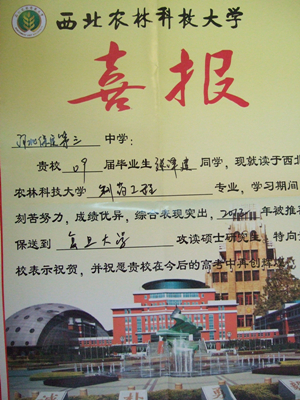 西北农林科技大学
喜报
第三 中学：
贵校 09 届毕业生 同学，现就读于西北
农林科技大学 制药工程 专业，学习期间
刻苦努力，成绩优异，综合表现突出， 年被推
保送到 复旦大学 攻读硕士研究生，特向
校表示祝贺，并祝愿贵校在今后的高考中再创辉